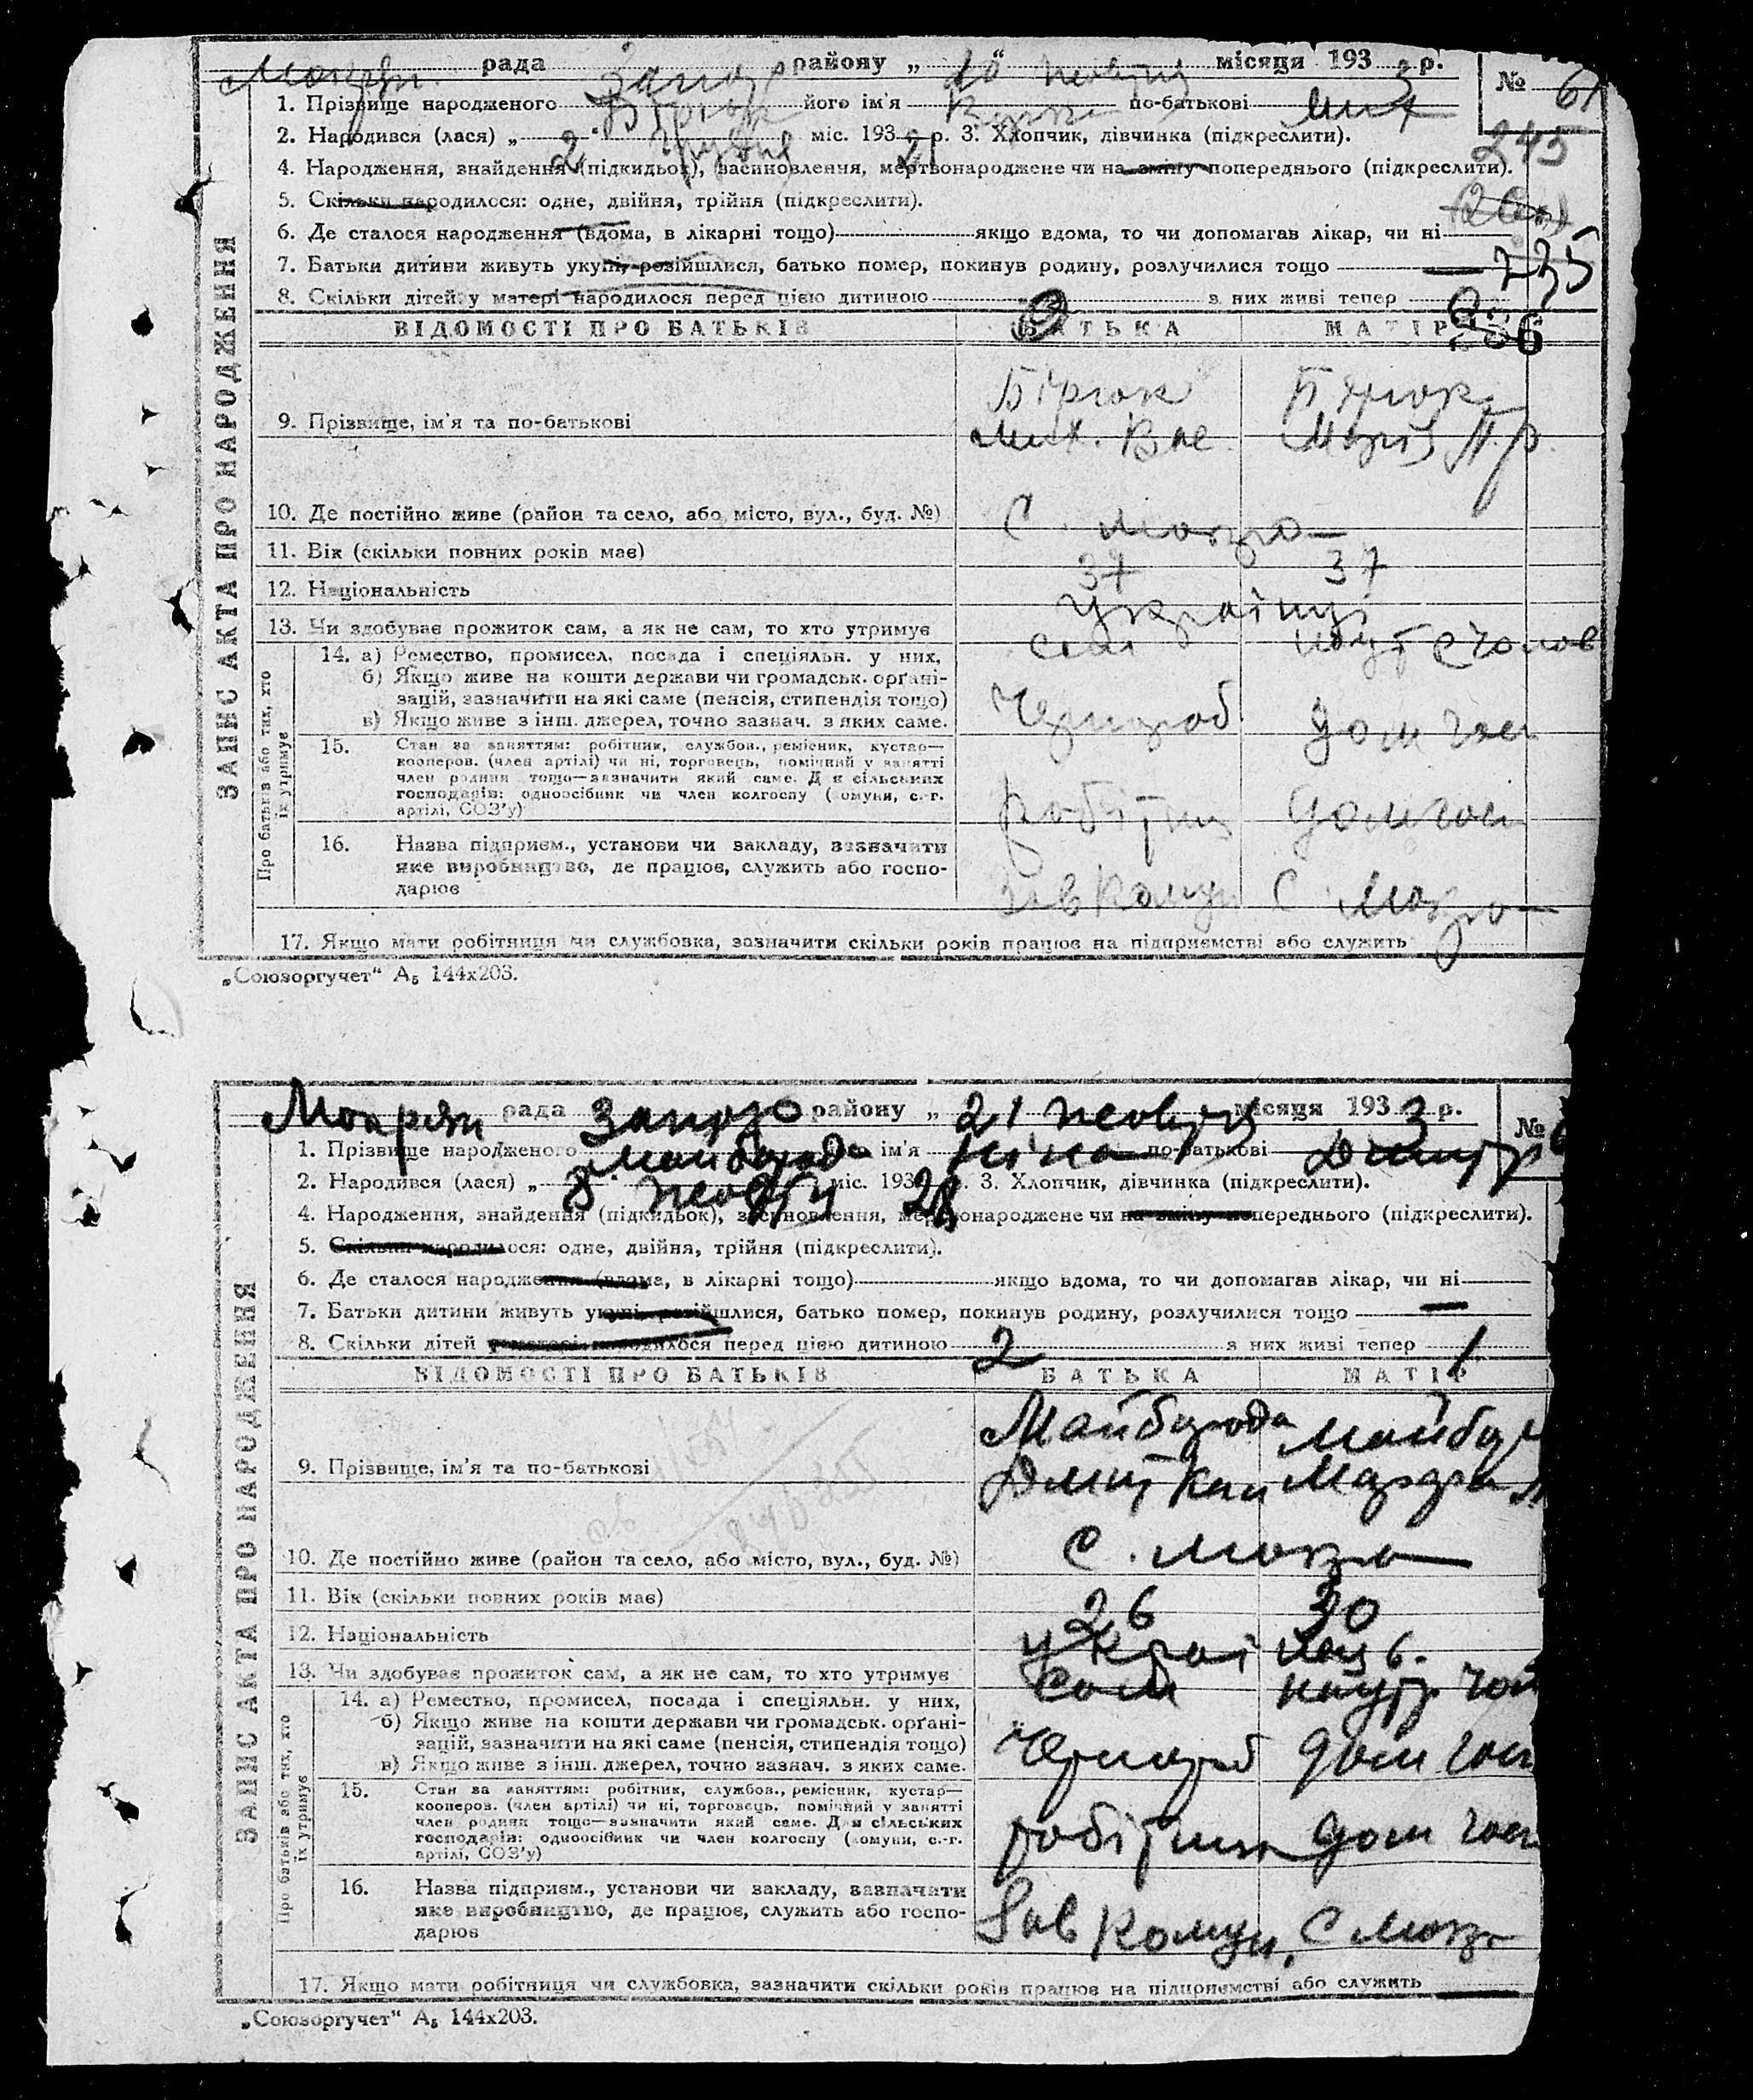 Мокрян рада Запоз району „ 20 “ лютня місяця 1933 р. № 61
1. Прізвище народженого Бірюк його ім'я по-батькові Мих
2. Народився (лася) „ 2 “ грудня міс. 1932 р. 3. Хлопчик, дівчинка (підкреслити).
245
4. Народження, знайдення (підкидьок), засиновлення, мертвонароджене чи на зміну попереднього (підкреслити).
5. Скільки народилося: одне, двійня, трійня (підкреслити).
6. Де сталося народження (вдома, в лікарні тощо) якщо вдома, то чи допомагав лікар, чи ні
7. Батьки дитини живуть укупі, розійшлися, батько помер, покинув родину, розлучилися тощо
235
8. Скільки дітей у матері народилося перед цією дитиною з них живі тепер
236
ВІДОМОСТІ ПРО БАТЬКІВ БАТЬКА МАТІР
ЗАПИС АКТА ПРО НАРОДЖЕННЯ
Бірюк Бірюк
9. Прізвище, ім'я та по-батькові Мих. Вас. Марія
10. Де постійно живе (район та село, або місто, вул., буд. №) С. Мокро
11. Вік (скільки повних років має) 37 37
12. Національність Україці
13. Чи здобуває прожиток сам, а як не сам, то хто утримує сам чолов
Про батьків або тих, хто їх утримує
14. а) Ремество, промисел, посада і спеціяльн. у них,
б) Якщо живе на кошти держави чи громадськ. органі-
зацій, зазначити на які саме (пенсія, стипендія тощо) Чернороб дом гос
в) Якщо живе з інш. джерел, точно зазнач. з яких саме.
15. Стан за заняттям: робітник, службов., ремісник, кустар—
кооперов. (член артілі) чи ні, торговець, помічний у занятті
член родини тощо—зазначити який саме. Для сільських
господарів: одноосібник чи член колгоспу (комуни, с.-г. робітник дом гос
артілі, СОЗ'у)
16. Назва підприєм., установи чи закладу, зазначити
яке виробництво, де працює, служить або госпо-
дарює Зав Комун С Мокро
17. Якщо мати робітниця чи службовка, зазначити скільки років працює на підприємстві або служить
„Союзоргучет“ А5 144х203.
Мокрян рада Запоз району „ 21 лютня місяця 1933 р. №
1. Прізвище народженого Майборода ім'я Ніна по-батькові Дмитр
2. Народився (лася) „ 8 “ міс. 193 3. Хлопчик, дівчинка (підкреслити).
4. Народження, знайдення (підкидьок), засиновлення, мертвонароджене чи на зміну попереднього (підкреслити).
5. Скільки народилося: одне, двійня, трійня (підкреслити).
6. Де сталося народження (вдома, в лікарні тощо) якщо вдома, то чи допомагав лікар, чи ні
7. Батьки дитини живуть укупі, розійшлися, батько помер, покинув родину, розлучилися тощо
8. Скільки дітей у матері народилося перед цією дитиною 2 з них живі тепер 1
ВІДОМОСТІ ПРО БАТЬКІВ БАТЬКА МАТІР
ЗАПИС АКТА ПРО НАРОДЖЕННЯ
Майборода Майбор
9. Прізвище, ім'я та по-батькові Дмит
10. Де постійно живе (район та село, або місто, вул., буд. №) С. Мокро
11. Вік (скільки повних років має) 26 30
12. Національність Украі
13. Чи здобуває прожиток сам, а як не сам, то хто утримує сам
Про батьків або тих, хто їх утримує
14. а) Ремество, промисел, посада і спеціяльн. у них,
б) Якщо живе на кошти держави чи громадськ. органі-
зацій, зазначити на які саме (пенсія, стипендія тощо) Чернороб дом гос
в) Якщо живе з інш. джерел, точно зазнач. з яких саме.
15. Стан за заняттям: робітник, службов., ремісник, кустар—
кооперов. (член артілі) чи ні, торговець, помічний у занятті
член родини тощо—зазначити який саме. Для сільських
господарів: одноосібник чи член колгоспу (комуни, с.-г. робітник дом гос
артілі, СОЗ'у)
16. Назва підприєм., установи чи закладу, зазначити
яке виробництво, де працює, служить або госпо-
дарює Зав Комун. С Мокр
17. Якщо мати робітниця чи службовка, зазначити скільки років працює на підприємстві або служить
„Союзоргучет“ А5 144х203.